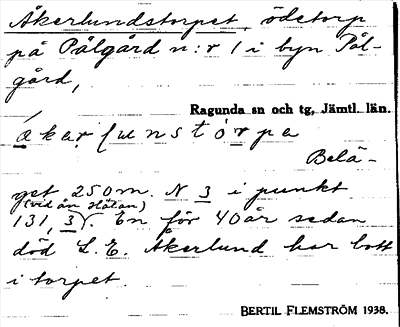 Åkerlundstorpet, ödetorp
på Pålgård n:r 1 i byn Pål-
gård,
Ragunda sn och tg, Jämtl. län.
ákaṛḷunstó̱rpa
Belä-
get 250 m. N 3 i punkt
(vid ån Hätan)
131, 3). En för 40 år sedan
död L. E. Åkerlund har bott
i torpet.
BERTIL FLEMSTRÖM 1938.